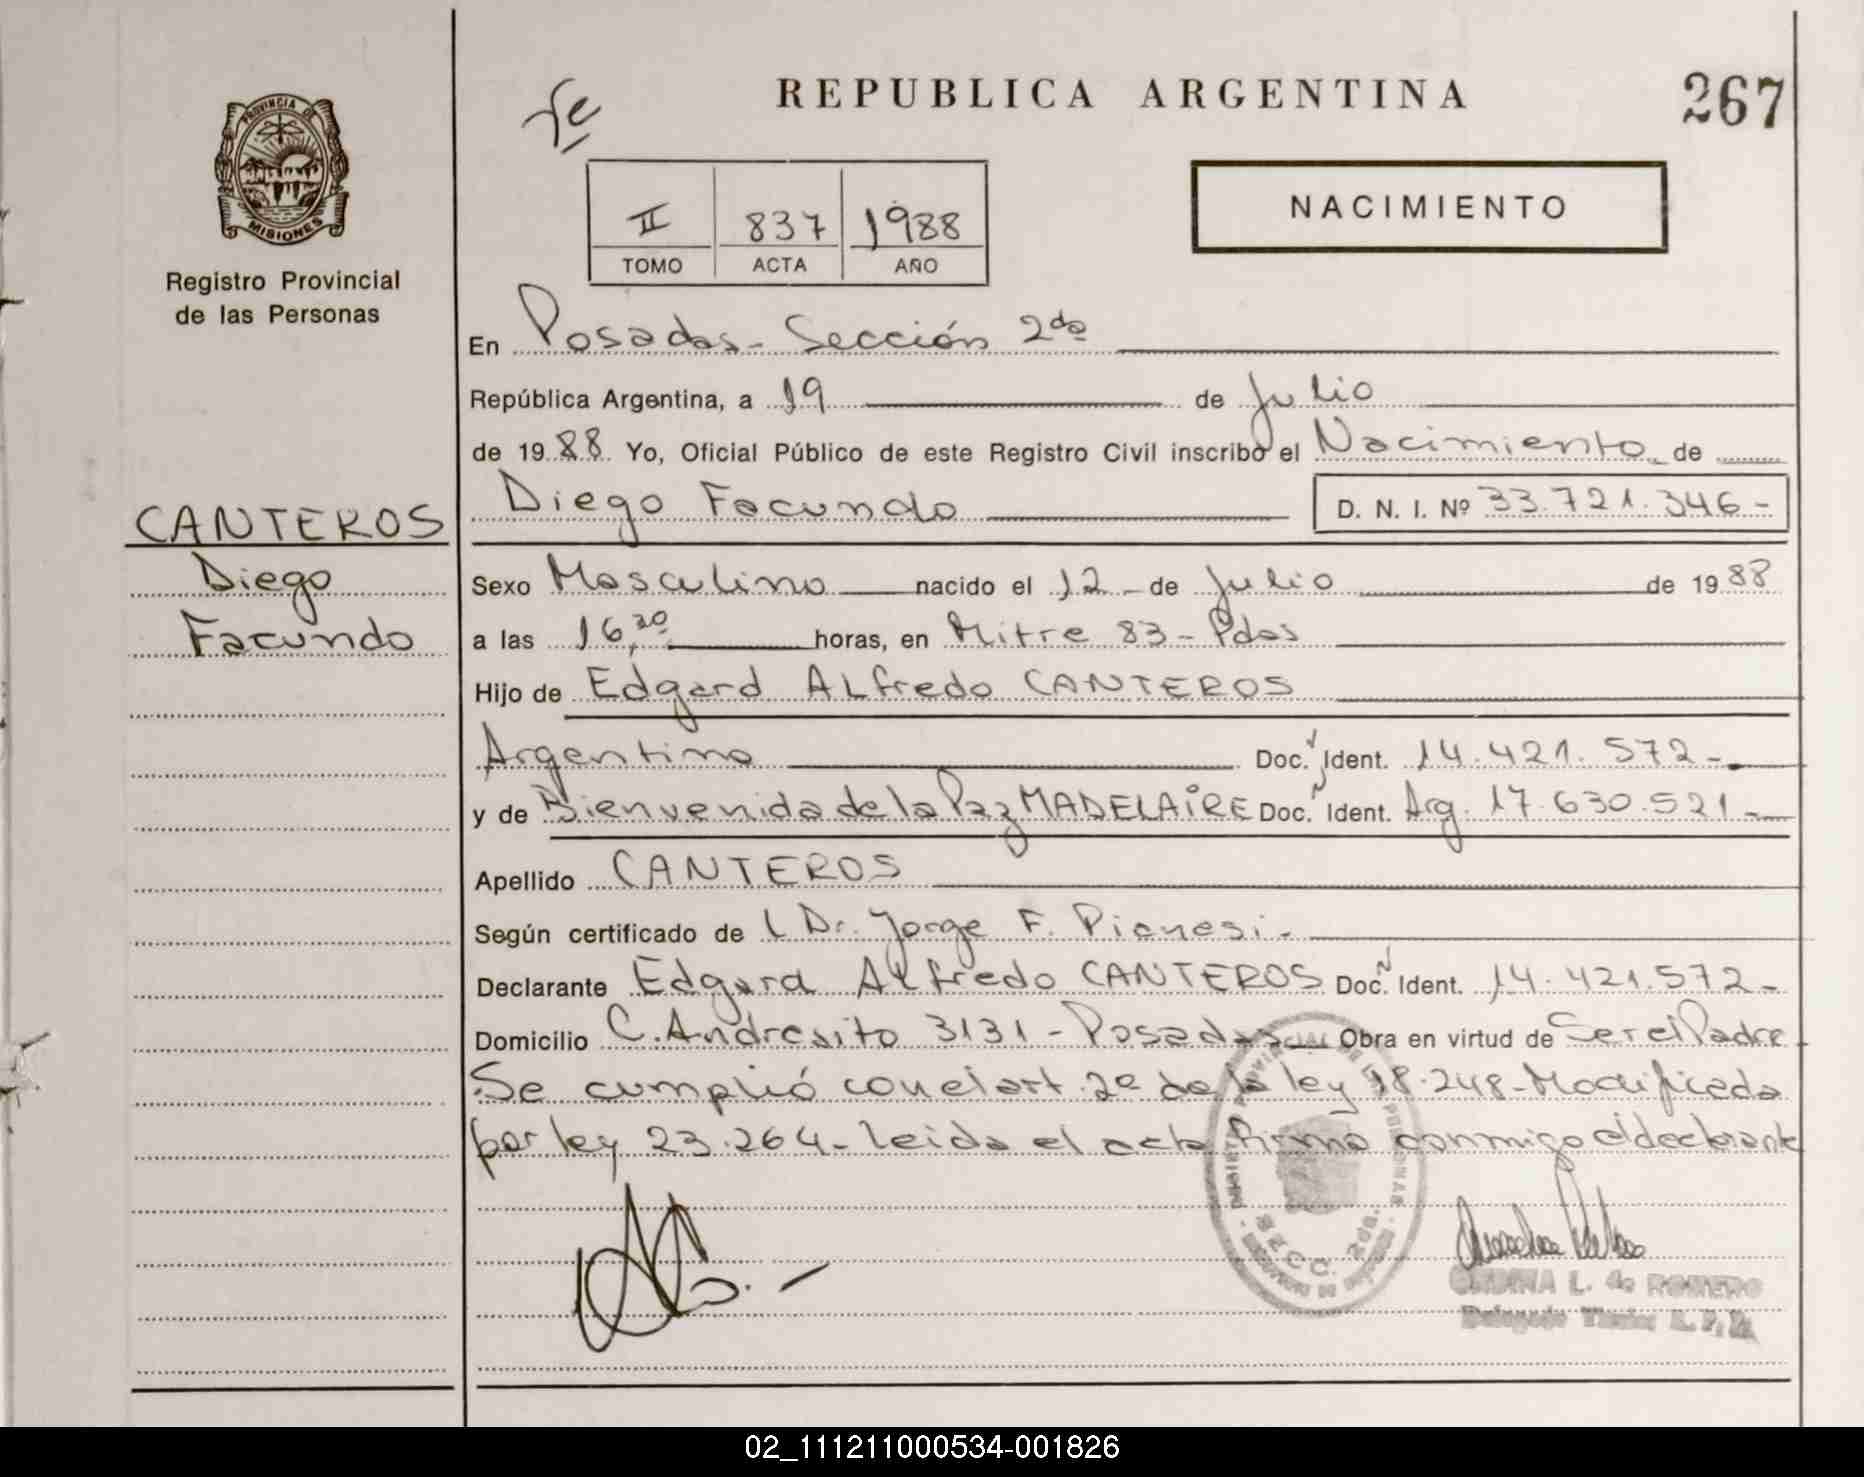 REPUBLICA ARGENTINA
267
PROVINCIA DE
MISIONES
Registro Provincial
de las Personas
II 837 1988
TOMO ACTA AÑO
NACIMIENTO
En Posadas - Sección 2da
República Argentina, a 19 de Julio
de 1988 Yo, Oficial Público de este Registro Civil inscribo el Nacimiento de
Diego Facundo D. N. I. Nº 33.721.346-
CANTEROS
Diego
Facundo
Sexo Masculino nacido el 12 - de Julio de 1988
a las 16,20 horas, en Mitre 83 - Pdas
Hijo de Edgard Alfredo CANTEROS
Argentino Doc. Ident. 14.421.572-
y de Bienvenida de la Paz MADELAIRE Doc. Ident. Arg. 17.630.521-
Apellido CANTEROS
Según certificado de l Dr. Jorge F. Pianesi -
Declarante Edgard Alfredo CANTEROS Doc. Ident. 14.421.572-
Domicilio C. Andresito 3131 - Posadas Obra en virtud de Ser el Padre
Se cumplió con el art. 2º de la ley 18.248 - Modificada
por ley 23.264 - Leida el acta firma conmigo el declarante
SECC. 2da.
L. de ROMERO
Delegado Titular R.P.P.
02_111211000534-001826